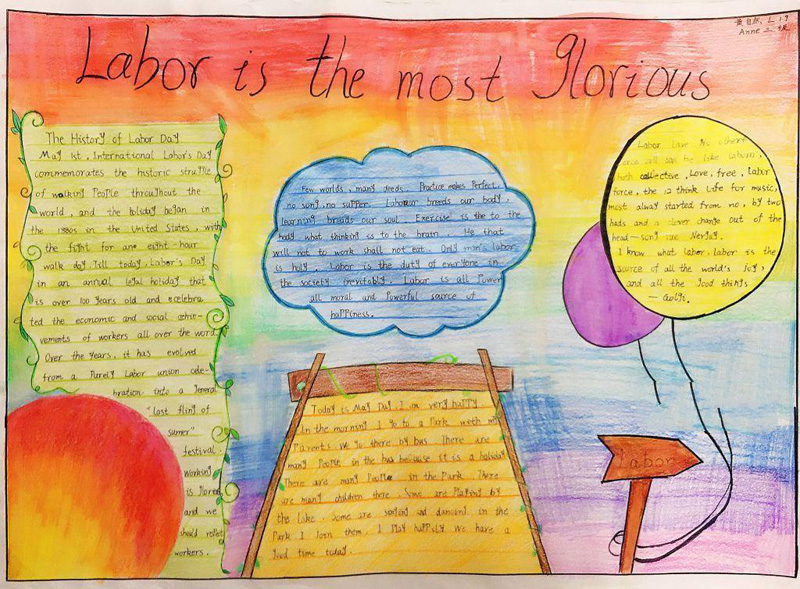 Labor is the most Glorious
Anne
The History of Labor Day
May 1st, International Labor's Day
commemorates the historic struffle
of walking People throughout the
world, and the holiday began in
the 1880s in the United States, with
the fight for ane eight-hair
walk day, Till today, Labor's Day
in an annual legal holiday that
is over 100 years old and ecelebra
ted the economic and social achie-
vements of workers all over the word
Over the years, it has evolved
from a Purely Labor union cele-
bration into a general
"last fling of
sumer"
festival.
working
is
and we
should
workers.
Few worlds, many deeds. Practice makes Perfect,
no song no supper. Laborour breeds our body,
learning breads our soul. Exercise is the to the
body what thinking is to the brain. He that
will not to work shall not eat. Only man's labor
is holy. Labor is the duty of everyone in
the society inevitably. Labor is all Power
all moral and Powerful source of
happiness.
Today is May Day. I am very happy
In the morning I go to a Park with my
Parents we go there by bus. There are
many People in the bus because it is a holiday
There are many People in the Park. There
are many children there. Some are Playing by
the Lake. some are singing and dancing in the
Park I join them. I Play happily We have a
good time today.
Labor Love No others
once all can be like Labour,
both collective, Love, free, Labor
force, the 12 think life for music,
most alway started from no, by two
hads and a clever change out of the
head-song
I know what labor, labor is the
source of all the world's Joy,
and all the good things
Labor